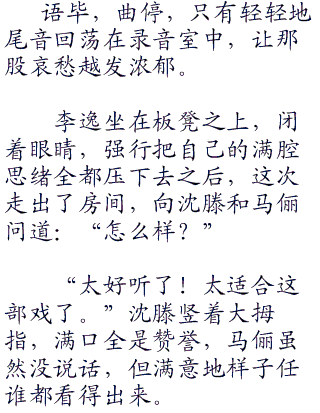 语毕，曲停，只有轻轻地
尾音回荡在录音室中，让那
股哀愁越发浓郁。
李逸坐在板凳之上，闭
着眼睛，强行把自己的满腔
思绪全都压下去之后，这次
走出了房间，向沈滕和马俪
问道：“怎么样？”
“太好听了！太适合这
部戏了。”沈滕竖着大拇
指，满口全是赞誉，马俪虽
然没说话，但满意地样子任
谁都看得出来。